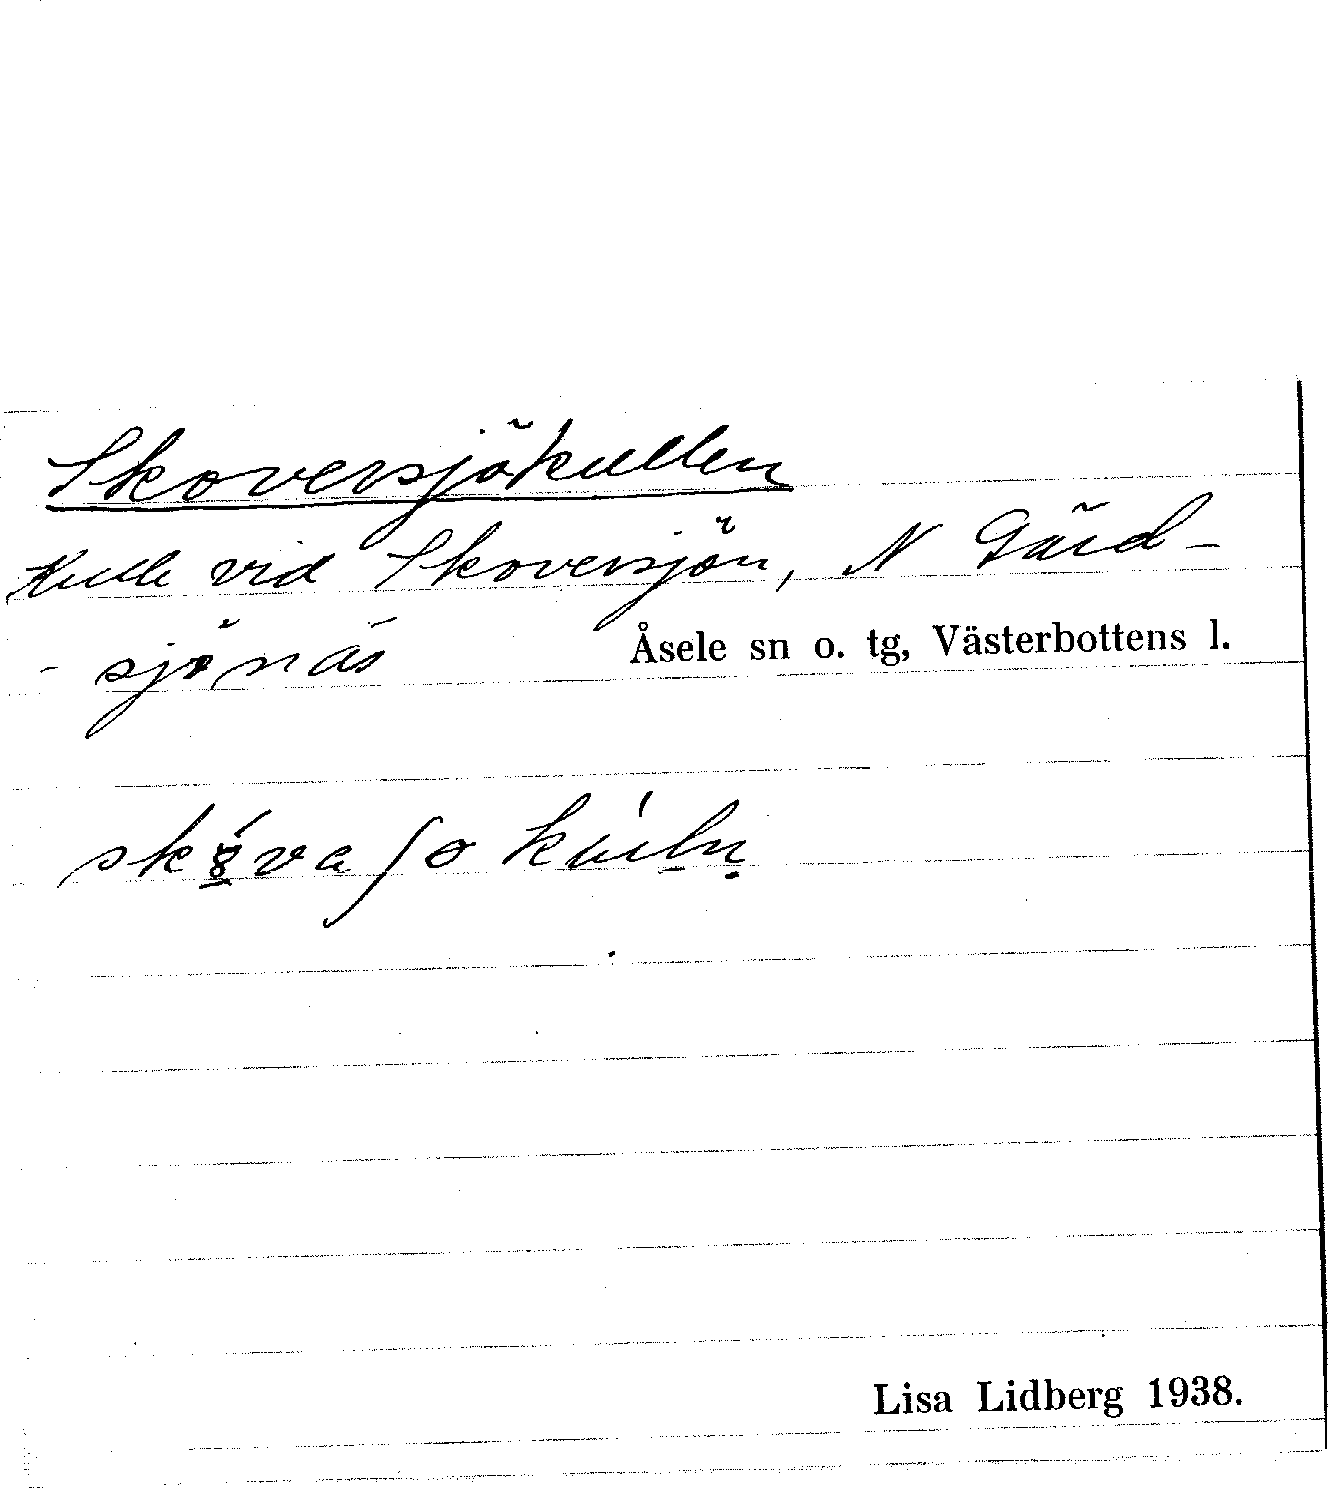 Skoversjökullen
Kulle vid Skoversjön, N Gärd-
- sjönäs Åsele sn o. tg, Västerbottens l.
Lisa Lidberg 1938.